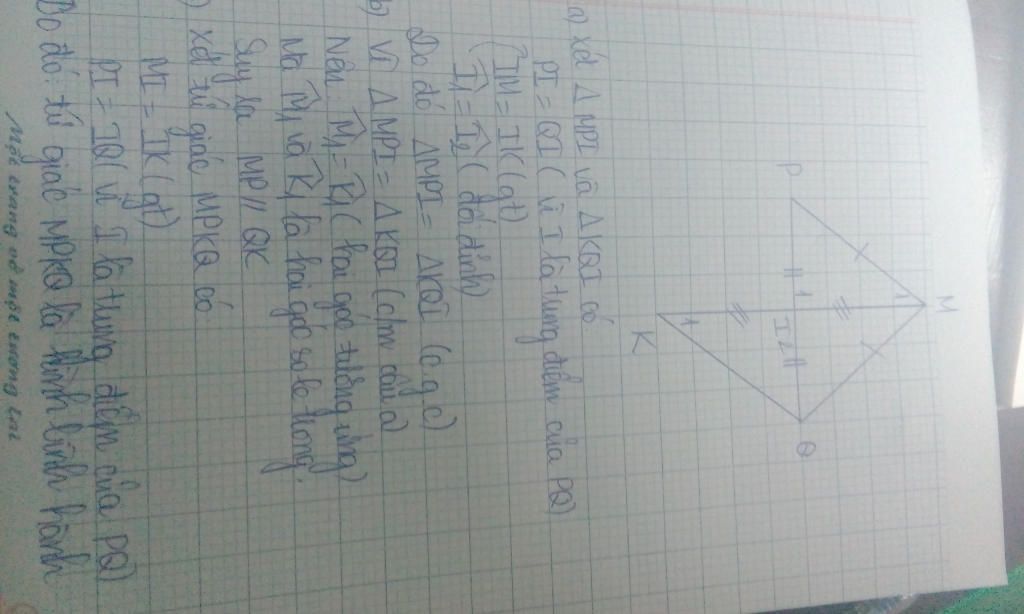 M
P
1
1
I 2
Q
1
K
a) Xét Δ MPI và Δ KQI có
PI = QI ( vì I là trung điểm của PQ)
IM = IK (gt)
I1 = I2 ( đối đỉnh)
Do đó ΔMPI = ΔKQI (c.g.c)
b) Vì Δ MPI = Δ KQI (c/m câu a)
Nên M1 = K1 ( hai góc tương ứng)
Mà M1 và K1 là hai góc so le trong.
Suy ra MP // QK
) Xét tứ giác MPKQ có
MI = IK (gt)
PI = IQ ( vì I là trung điểm của PQ)
Do đó: tứ giác MPKQ là hình bình hành
Một trang vở một tương lai